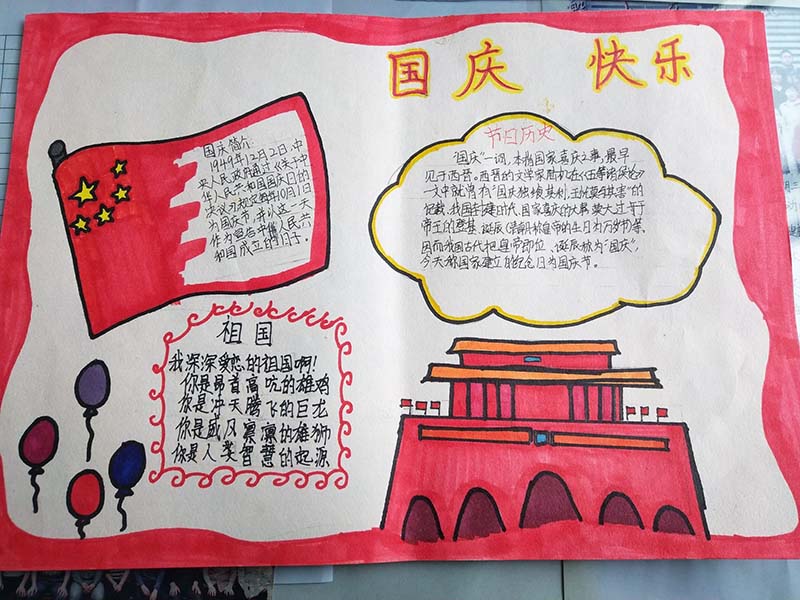 国庆 快乐
国庆简介:
1949年12月2日,中
央人民政府通过《关于中
华人民共和国国庆日的
决议》规定每年10月1日
为国庆节,并以这一天
作为宣告中华人民共
和国成立的日子。
节日历史
"国庆"一词,本指国家喜庆之事,最早
见于西晋。西晋的文学家陆机在《五等诸侯论》
一文中就曾有"国庆独飨其利,主忧莫与其害"的
记载、我国封建时代、国家喜庆的大事,莫大过于
帝王的登基、诞辰(清朝称皇帝的生日为万岁节)等。
因而我国古代把皇帝即位、诞辰称为"国庆",
今天称国家建立的纪念日为国庆节。
祖国
我深深爱恋的祖国啊!
你是昂首高吭的雄鸡
你是冲天腾飞的巨龙
你是威风凛凛的雄狮
你是人类智慧的起源